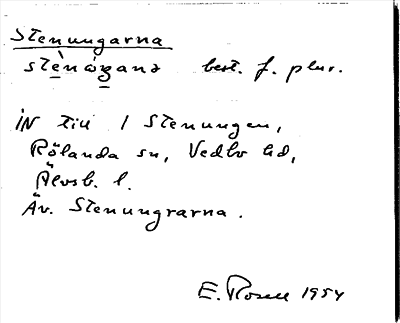 Stenungarna
stènáganə best. f. plur.
IN till 1 Stenungen,
Rölanda sn, Vedbo hd,
Älvsb. l.
Äv. Stenungrarna.
E. Rosell 1954